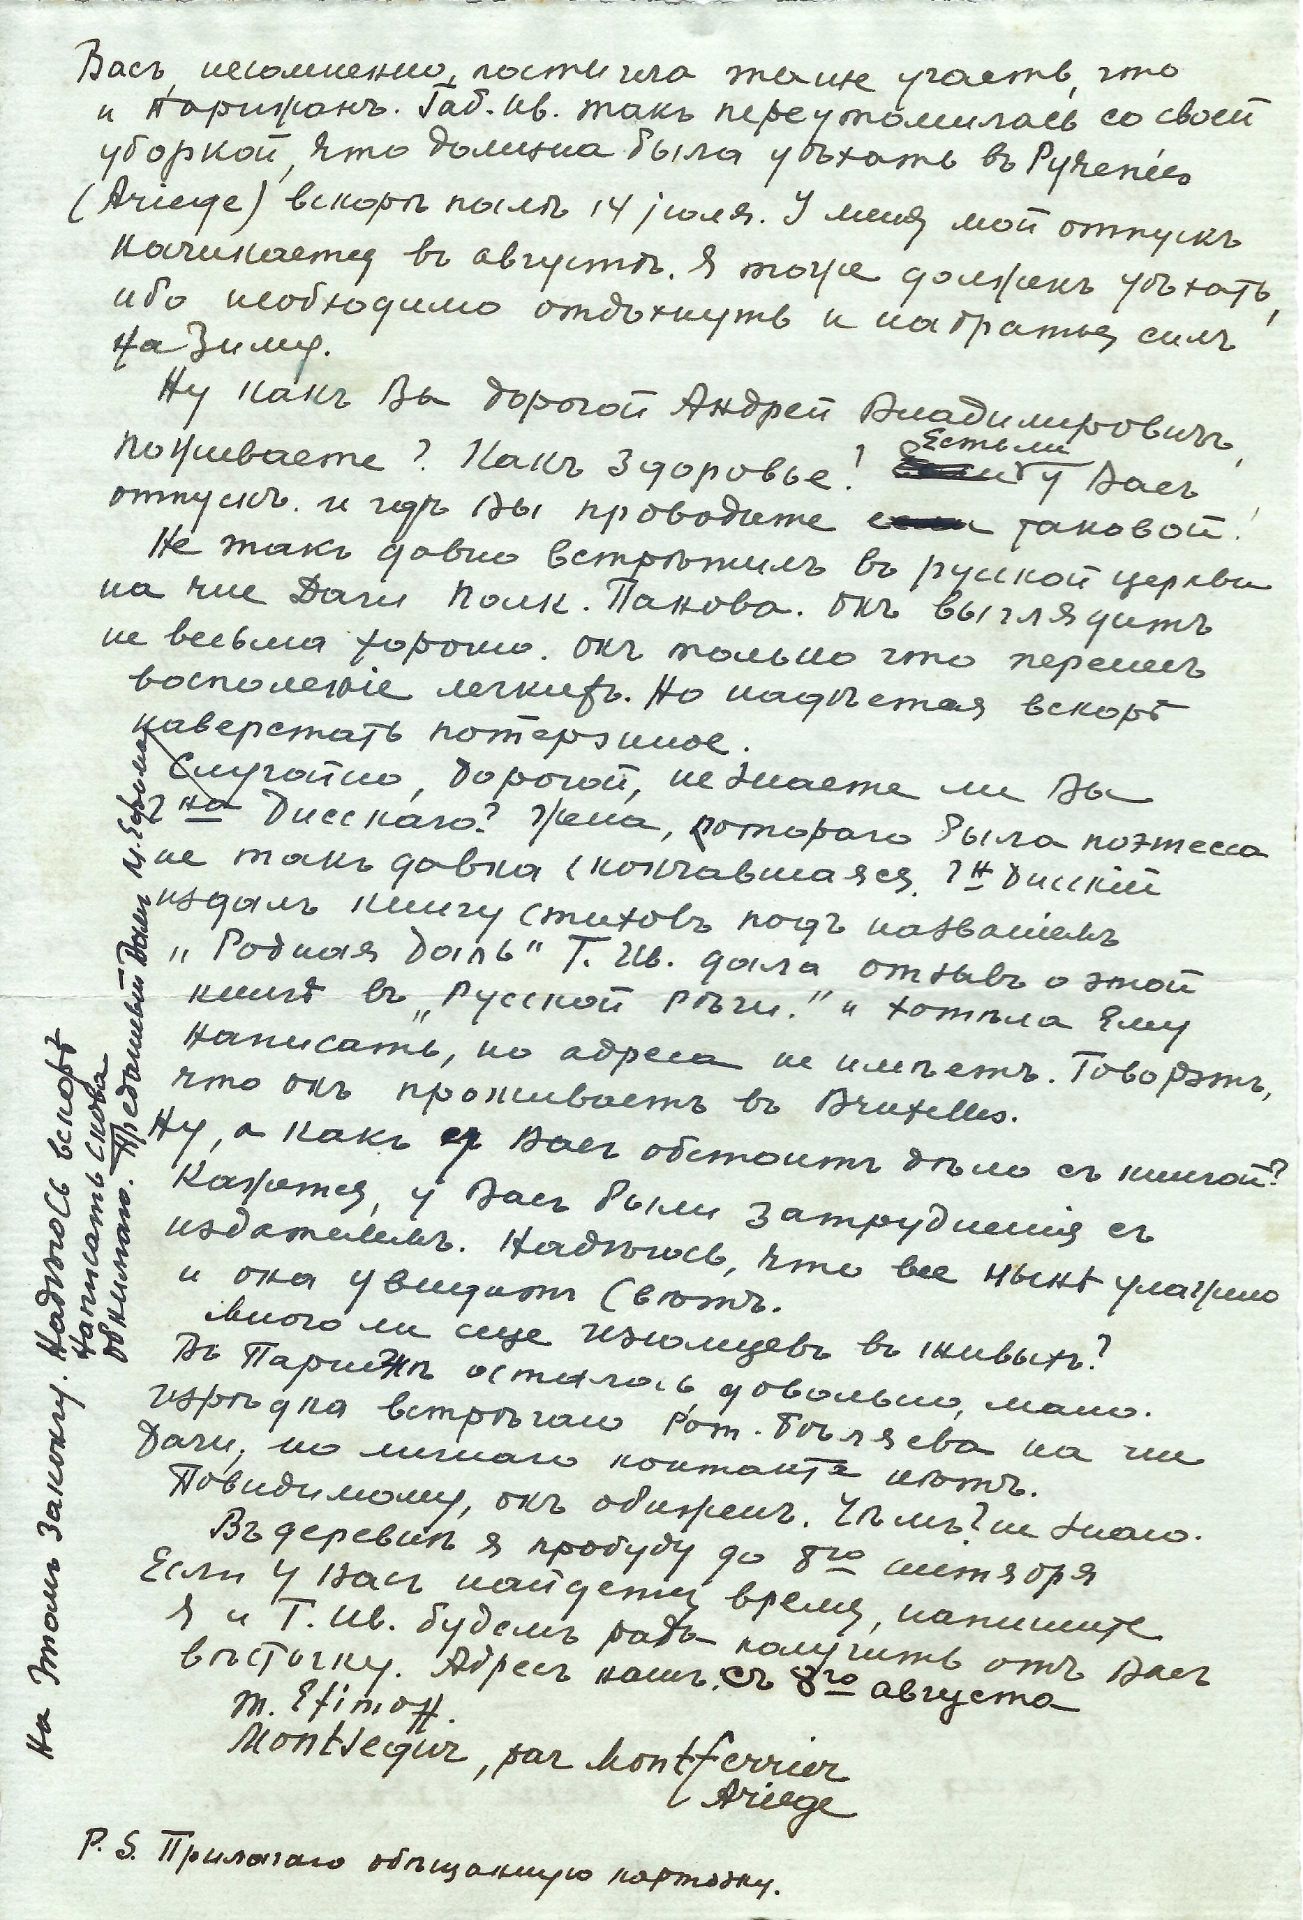 Васъ, несомненно, постигла та же участь, что
и Парижанъ. Таб. Ив. такъ переутомилась со своей
уборкой, что должна была уѣхать въ Pyrenées
(Ariege) вскорѣ послѣ 14 июля. У меня мой отпускъ
начинается въ августѣ. Я тоже долженъ уѣхать,
ибо необходимо отдохнуть и набраться силъ
на Зиму.
Ну какъ Вы дорогой Андрей Владимировичъ,
поживаете? Какъ здоровье? Есть ли у Васъ
отпускъ. и гдѣ Вы проводите таковой.
Не такъ давно встрѣтилъ въ русской церкви
на rue Дарю Полк. Панова. Онъ выглядитъ
не весьма хорошо. Онъ только что перенесъ
восполеніе легкихъ. Но надѣется вскорѣ
наверстать потерянное.
Случайно, дорогой, не знаете ли Вы
г на Дисскаго? Жена, котораго была поэтесса
не такъ давна скончавшаяся. г н Дисскій
издалъ книгу стиховъ подъ названіемъ
„Родная Даль" Т. Ив. дала отзывъ о этой
книгѣ въ „Русской Рѣчи." и хотѣла Ему
написать, но адреса не имѣетъ. Говорятъ,
что онъ проживаетъ въ Bruxelles.
Ну, а какъ у Васъ обстоитъ дѣло съ книгой?
Кажется, у Васъ были затрудненія съ
издателемъ. Надѣюсь, что все нынѣ улажено
и она увидитъ Свѣтъ.
Много ли еще изюмцевъ въ живыхъ?
Въ Парижѣ осталось довольно, мало.
изрѣдка встрѣчаю Рот. Бѣляева на rue
Дарю, но личнаго контакта нѣтъ.
Повидимому, онъ обиженъ. Чѣмъ? не знаю.
Въ деревнѣ я пробуду до 8го сентября
Если у Васъ найдется время, напишите
Я и Т. Ив. будемъ рады получить отъ Васъ
вѣсточку. Адресъ нашъ. съ 8го августа
M. Efimoff.
Montsegur, par Montferrier
Ariege
P. S. Прилагаю обѣщанную карточку.
На Этомъ Закончу. Надѣюсь вскорѣ
написать снова
Обнимаю. Преданный Вамъ М. Ефимовъ